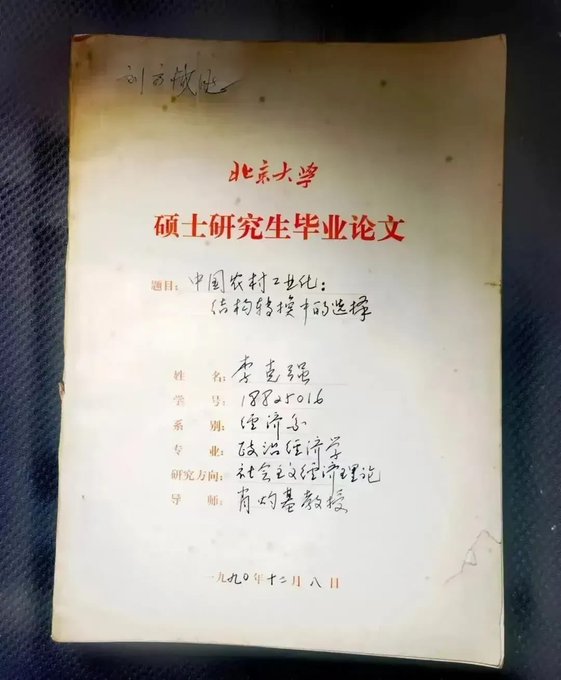 北京大学
硕士研究生毕业论文
题目：中国农村工业化：
结构转换中的选择
姓名：李克强
学号：18825016
系别：经济系
专业：政治经济学
研究方向：社会主义经济理论
导师：肖灼基教授
一九九〇年十二月八日